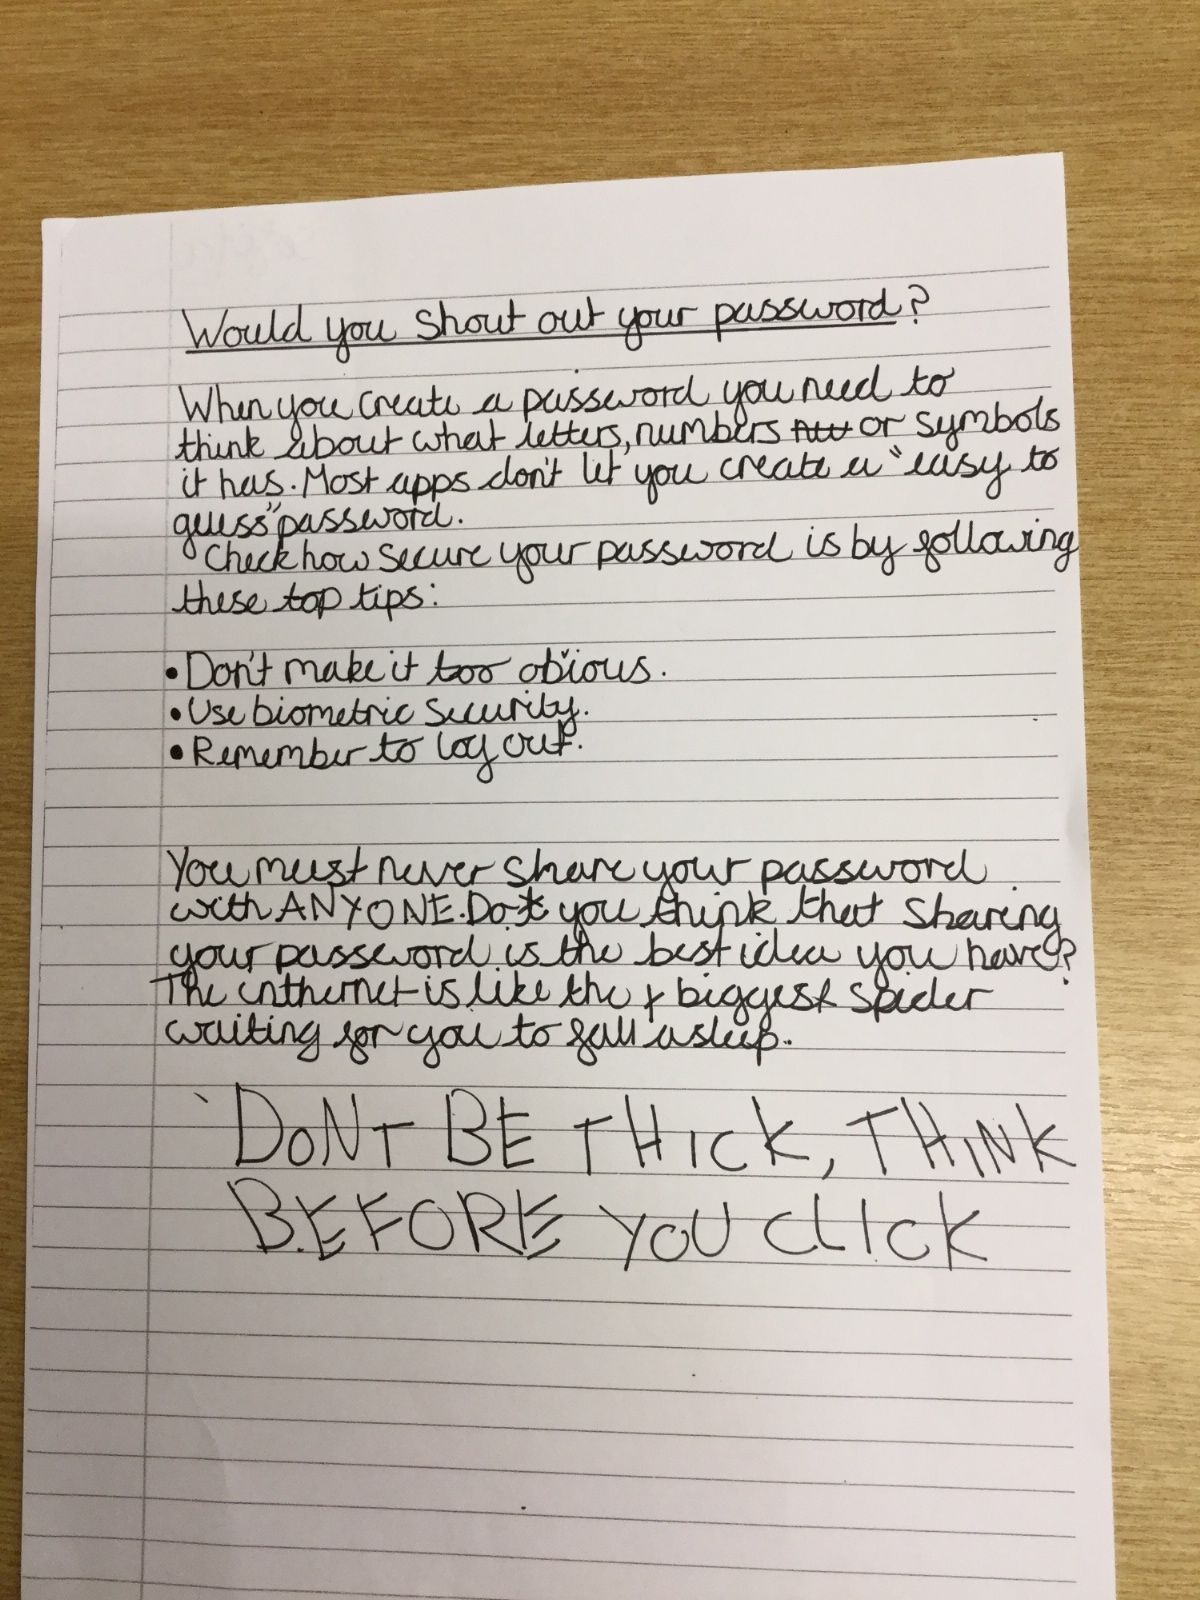 Would you shout out your password?
When you create a password you need to
think about what letters, numbers or symbols
it has. Most apps don't let you create a "easy to
guess" password.
Check how secure your password is by following
these top tips:
• Don't make it too obvious.
• Use biometric security.
• Remember to log out.
You must never share your password
with ANYONE. Do you think that sharing
your password is the best idea you have?
The inthernet is like the biggest spider
waiting for you to fall asleep.
DONT BE THICK, THINK
BEFORE YOU CLICK